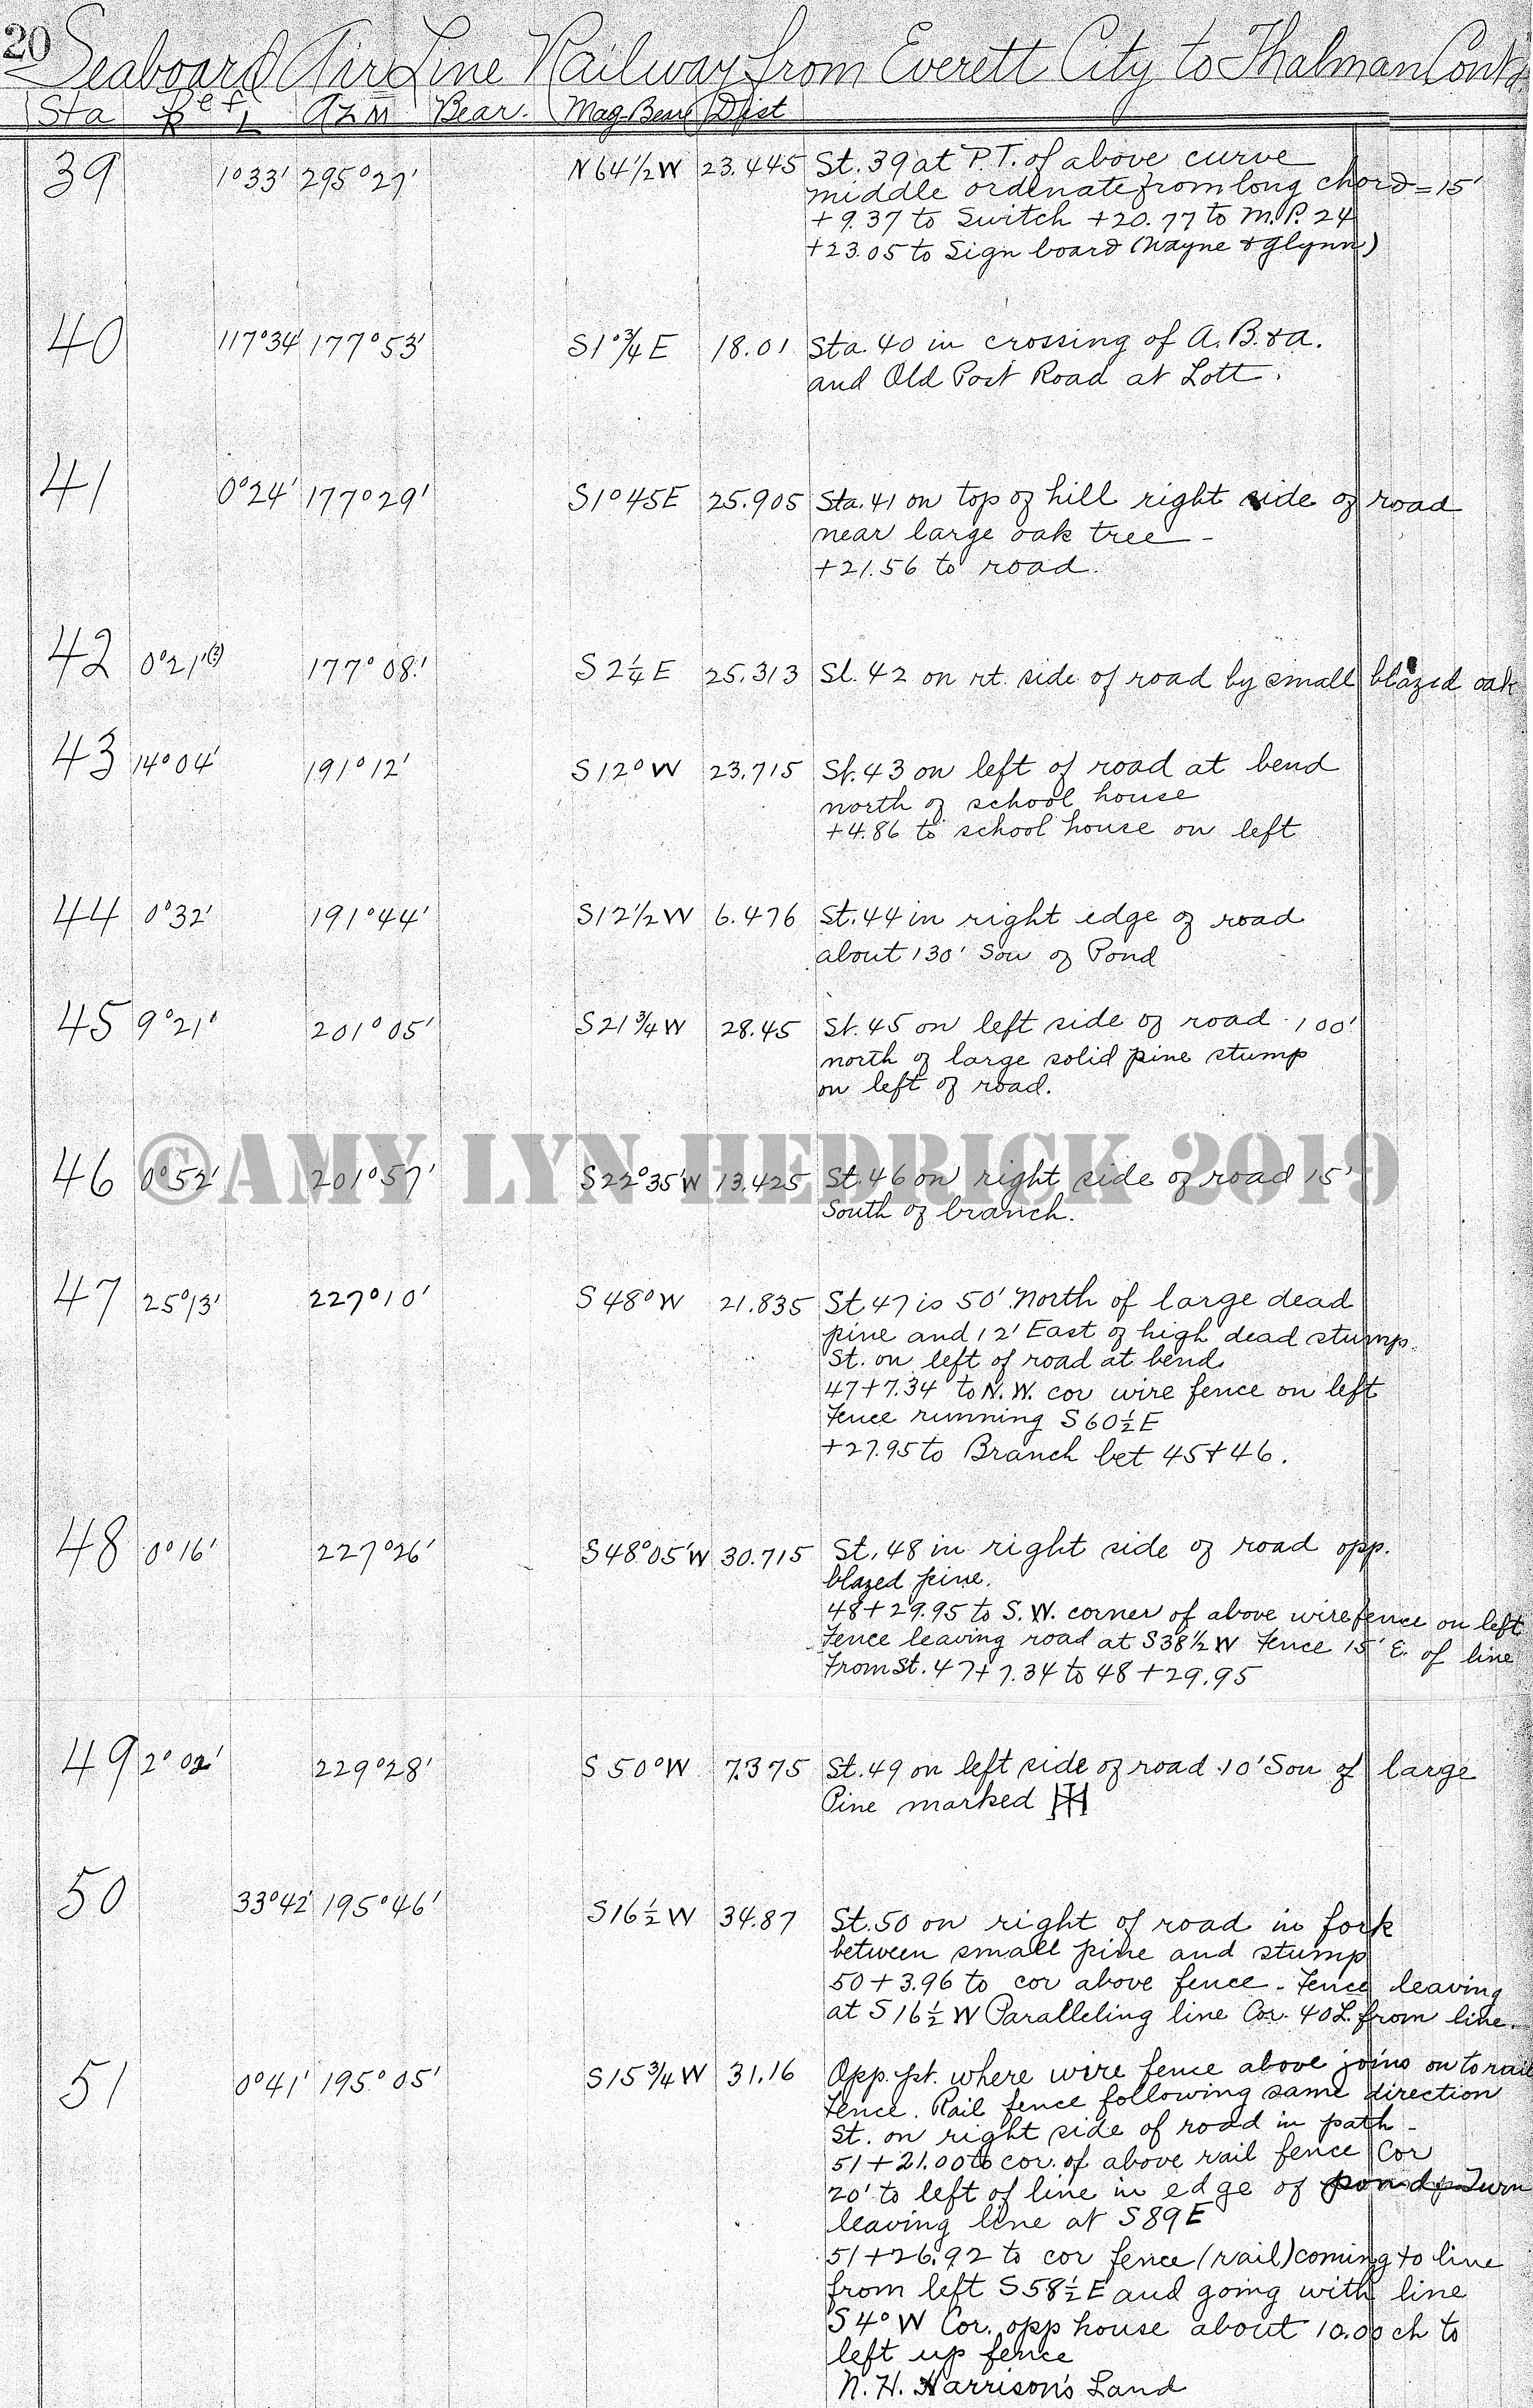 20 Seaboard Air Line Railway from Everett City to Thalman Cont'd
Sta Def R L Azm Bear. Mag. Bear Dist
39 1°33' 295°27' N64½W 23.445 St. 39 at P.T. of above curve
middle ordenate from long chord = 15'
+9.37 to Switch +20.77 to M.P. 24
+23.05 to Sign board (Wayne & Glynn)
40 117°34' 177°53' S1°¾E 18.01 Sta. 40 in crossing of A. B. & A.
and Old Post Road at Lott.
41 0°24' 177°29' S1°45E 25.905 Sta. 41 on top of hill right side of road
near large oak tree -
+21.56 to road.
42 0°21'(?) 177°08' S2¼E 25.313 St. 42 on rt. side of road by small blazed oak
43 14°04' 191°12' S12°W 23.715 St. 43 on left of road at bend
north of school house
+4.86 to school house on left
44 0°32' 191°44' S12½W 6.476 St. 44 in right edge of road
about 130' Sou of Pond
45 9°21' 201°05' S21¾W 28.45 St. 45 on left side of road 100'
north of large solid pine stump
on left of road.
©AMY LYN HEDRICK 2019
46 0°52' 201°57' S22°35'W 13.425 St. 46 on right side of road 15'
South of branch.
47 25°13' 227°10' S48°W 21.835 St. 47 is 50' North of large dead
pine and 12' East of high dead stump.
St. on left of road at bend.
47+7.34 to N.W. cor wire fence on left
Fence running S60½E
+27.95 to Branch bet 45+46.
48 0°16' 227°26' S48°05'W 30.715 St. 48 in right side of road opp.
blazed pine.
48+29.95 to S.W. corner of above wire fence on left
Fence leaving road at S38½W Fence 15' E. of line
From St. 47+7.34 to 48+29.95
49 2°02' 229°28' S50°W 7.375 St. 49 on left side of road 10' Sou of large
Pine marked
50 33°42' 195°46' S16½W 34.87 St. 50 on right of road in fork
between small pine and stump
50+3.96 to cor above fence - Fence leaving
at S16½W Paralleling line Cor. 40L. from line.
51 0°41' 195°05' S15¾W 31.16 Opp. pt. where wire fence above joins on to rail
Fence. Rail fence following same direction
St. on right side of road in path -
51+21.00 to cor. of above rail fence Cor
20' to left of line in edge of pond Turn
leaving line at S89E
51+26.92 to cor fence (rail) coming to line
from left S58½E and going with line
S4°W Cor. opp house about 10.00 ch to
left up fence
N. H. Harrison's Land